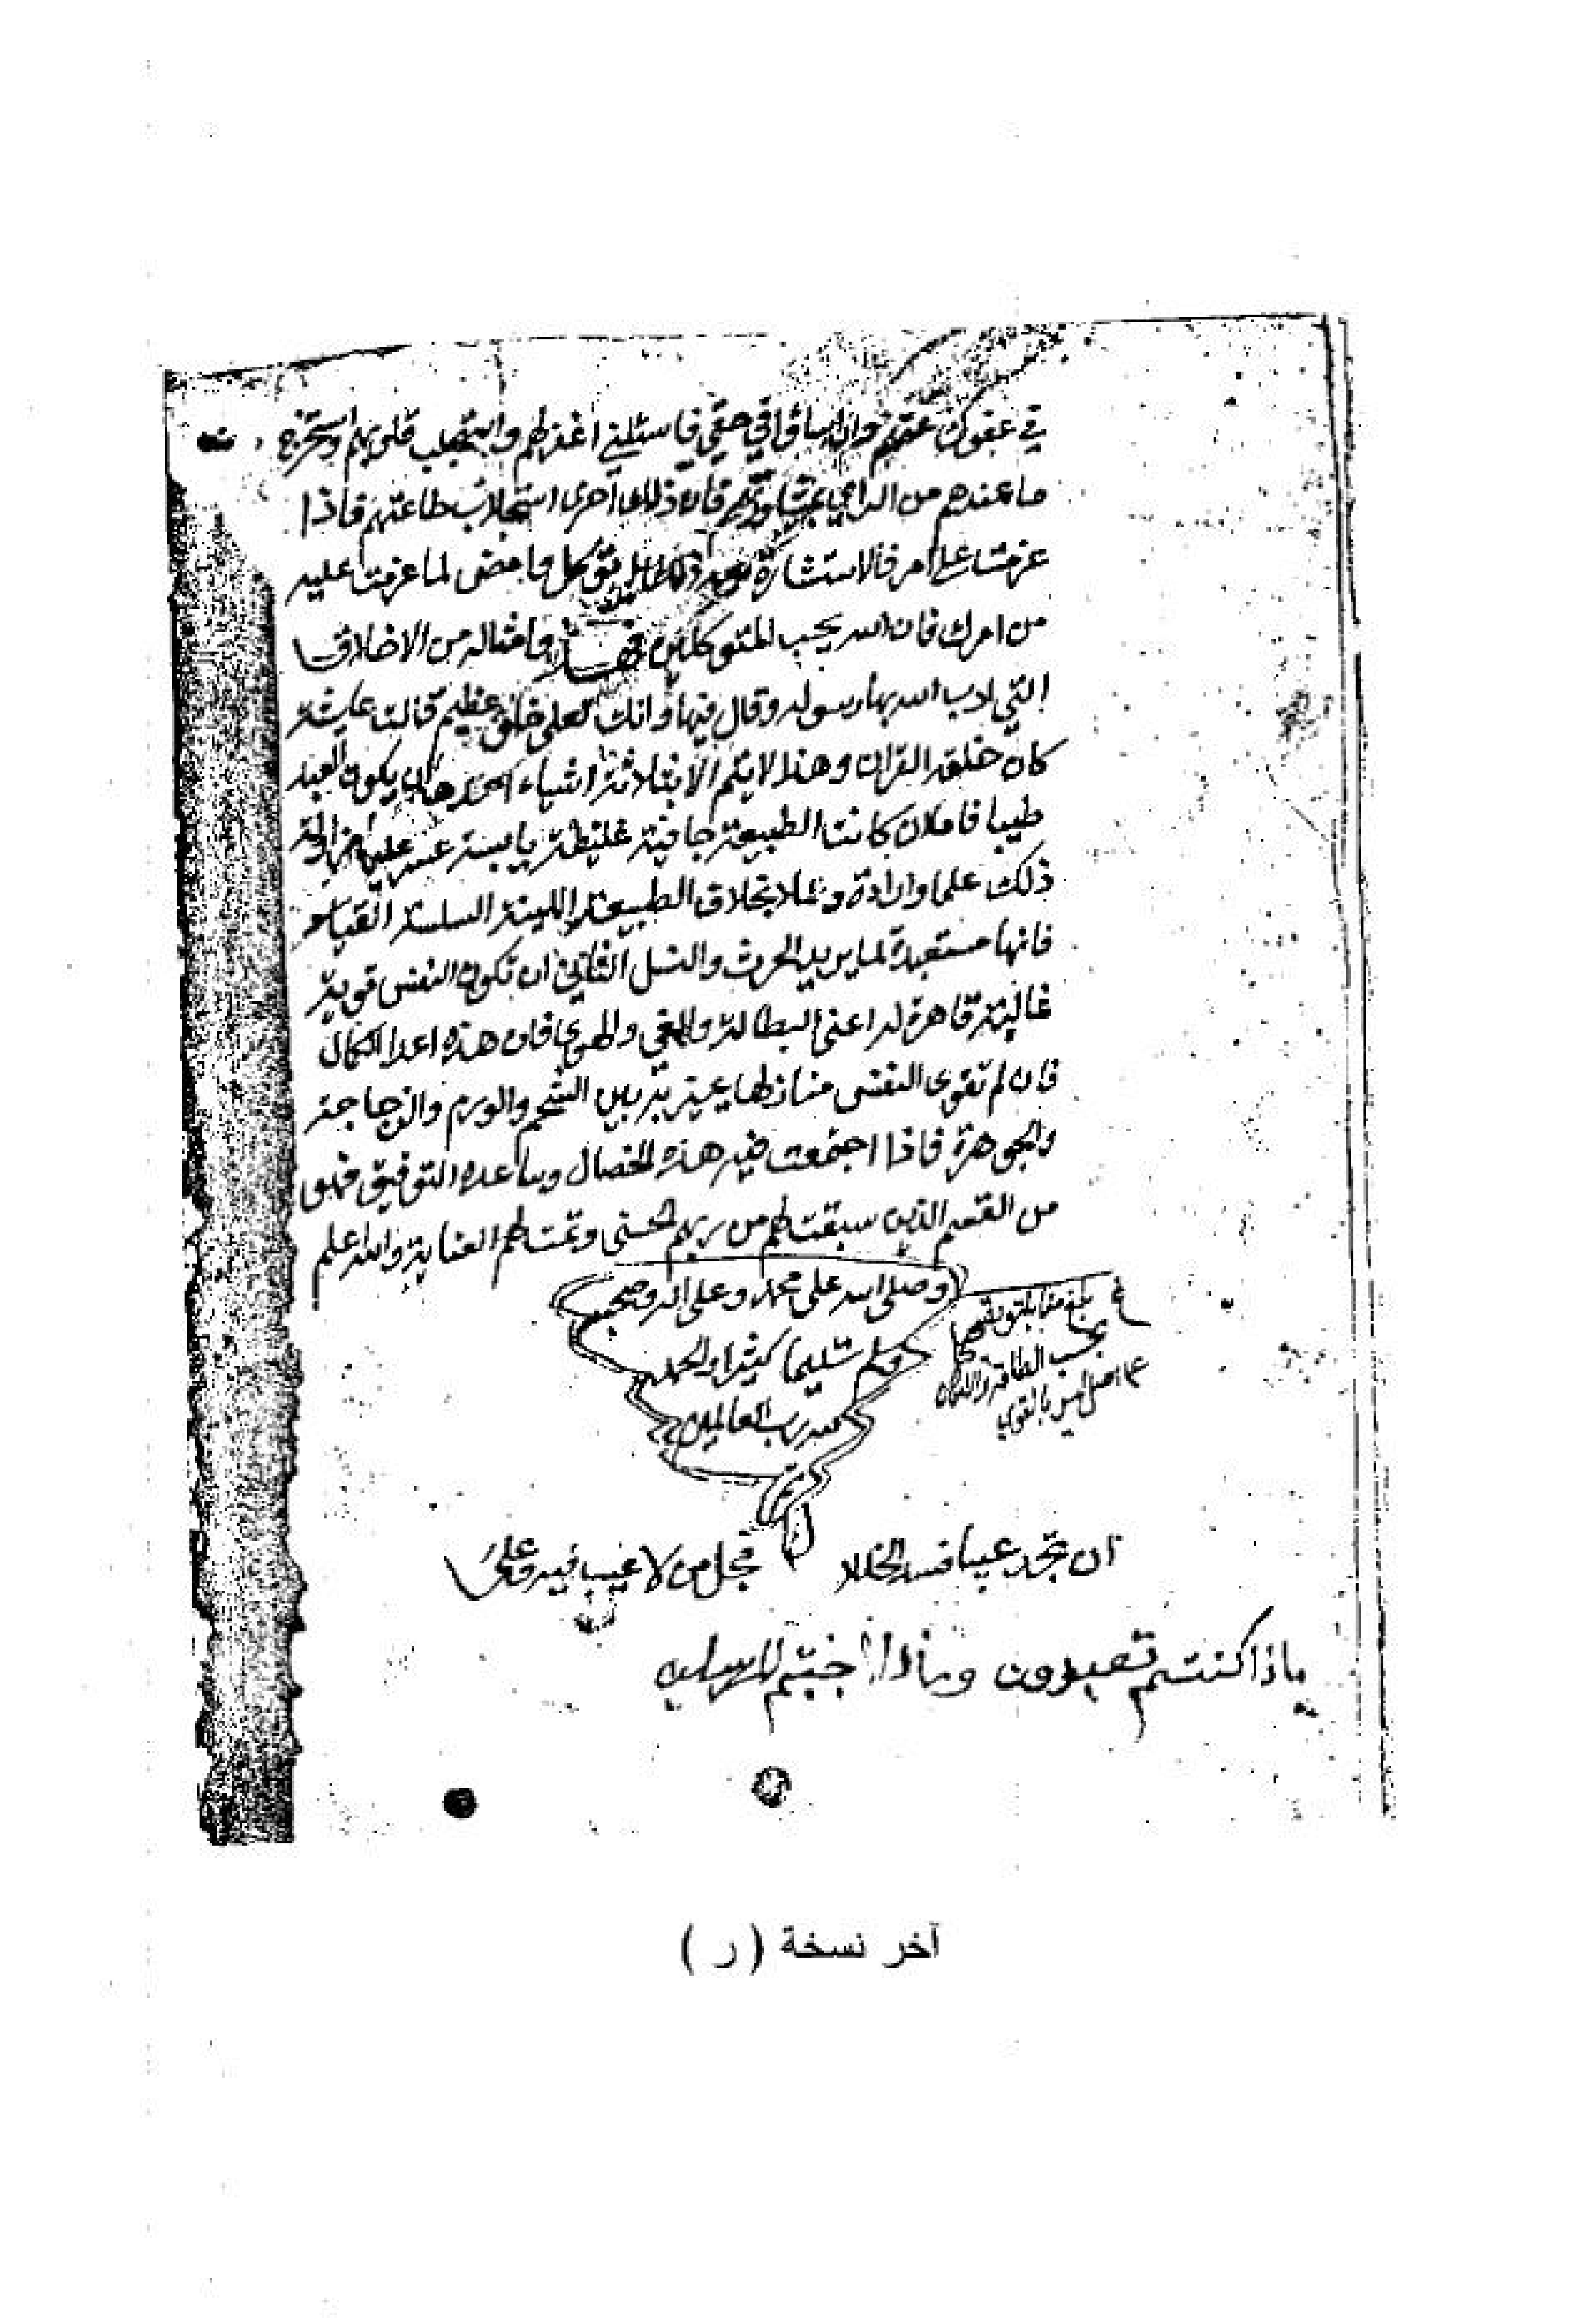 في عفوك عنهم وان اساؤا في حقي فاسئلني اغفرلهم واستجلب قلوبهم واستخرج
ما عندهم من الراي بمشاورتهم فان ذلك احرى استجلاب طاعتهم فاذا
عزمت على امر فلا استشارة بعد ذلك بل توكل وامض لما عزمت عليه
من امرك فان الله يحب المتوكلين فهذا وامثاله من الاخلاق
التي ادب الله بها رسوله وقال فيها وانك لعلى خلق عظيم قالت عايشة
كان خلقه القران وهذا لا يتم الا بثلاثة اشياء احدها ان يكون العبد
طيبا فاما ان كانت الطبيعة جافية غليظة يابسة عسر عليها مزاولة
ذلك علما وارادة وعملا بخلاف الطبيعة اللينة السلسة القياد
فانها مستعدة لما يريد الحرث والنسل الثاني ان تكون النفس قوية
غالبة قاهرة لدواعي البطالة والغي والهوى فان هذه اعدا الكمال
فان لم تقوى النفس يميز به بين الشحم والورم والزجاجة
والجوهرة فاذا اجتمعت فيه هذه الخصال وساعده التوفيق فهو
من القسم الذين سبقت لهم من ربهم الحسنى وتمت لهم العناية والله اعلم
وصلى الله على محمد وعلى اله وصحبه
وسلم تسليما كثيرا والحمد
لله رب العالمين
تم
بلغ مقابلة وتصحيحا
بحسب الطاقة
ان تجد عيبا فسد الخللا فجل من لا عيب فيه وعلا
ماذا كنتم تعبدون وماذا اجبتم المرسلين
آخر نسخة ( ر )